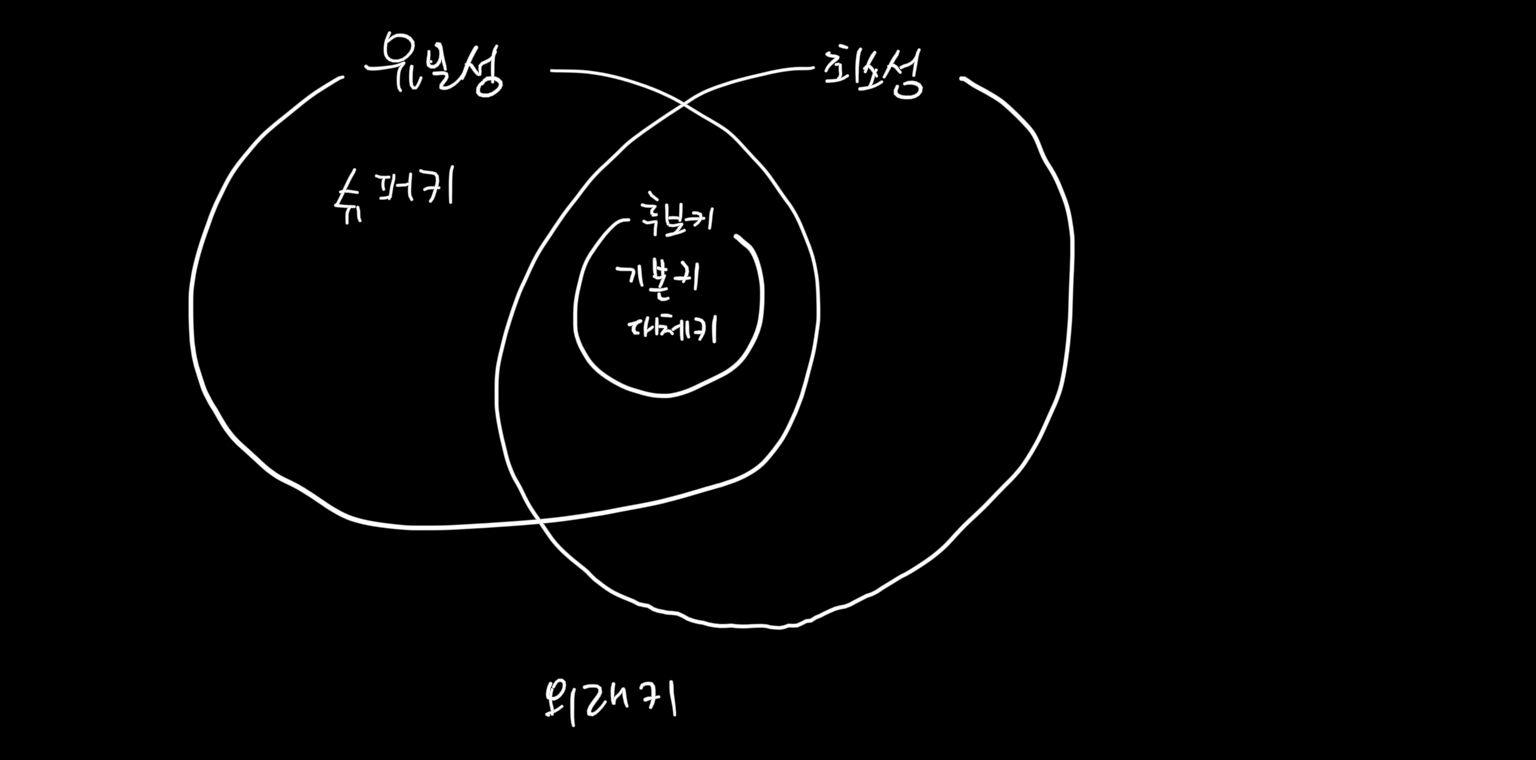 유일성
최소성
슈퍼키
후보키
기본키
대체키
외래키